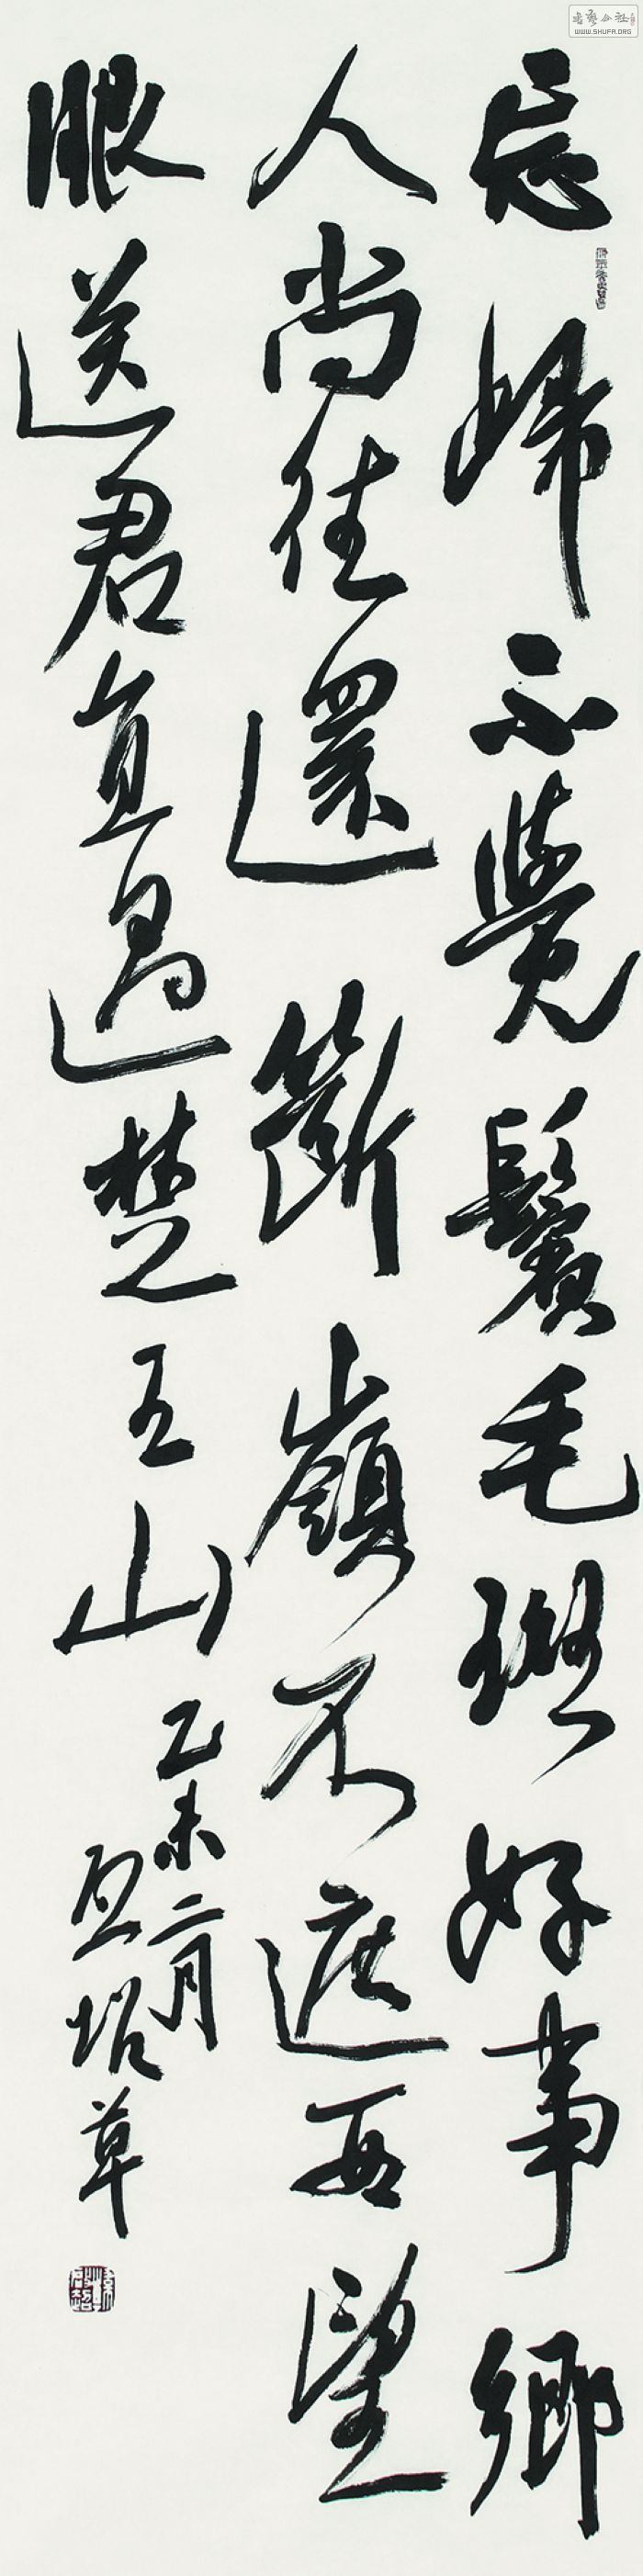 忘歸不覺鬢毛斑好事鄉
人尚往還斷嶺不遮西望
眼送君直過楚王山
乙未二月
草
WWW.SHUFA.ORG